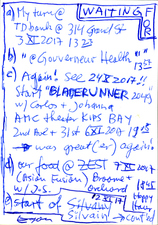 WAITING FOR
a) My turn @
TD bank @ 314 Grand St
3 XI 2017 13 23
b) "@ Gouverneur Health" 13
c) Again! See 24 X 2017!!
Start "BLADERUNNER 2049
w/ Carlos + Johanna
AMC theater KIPS BAY
2nd Ave + 31st 6 XI 2017 19
→ was great (er) again
d) our food @ ZEST 7 XI 2017
(Asian Fusion) Broome +
w/ J.S. orchard 19 45
Happy Hour
e) start of
Silvain → cont'd